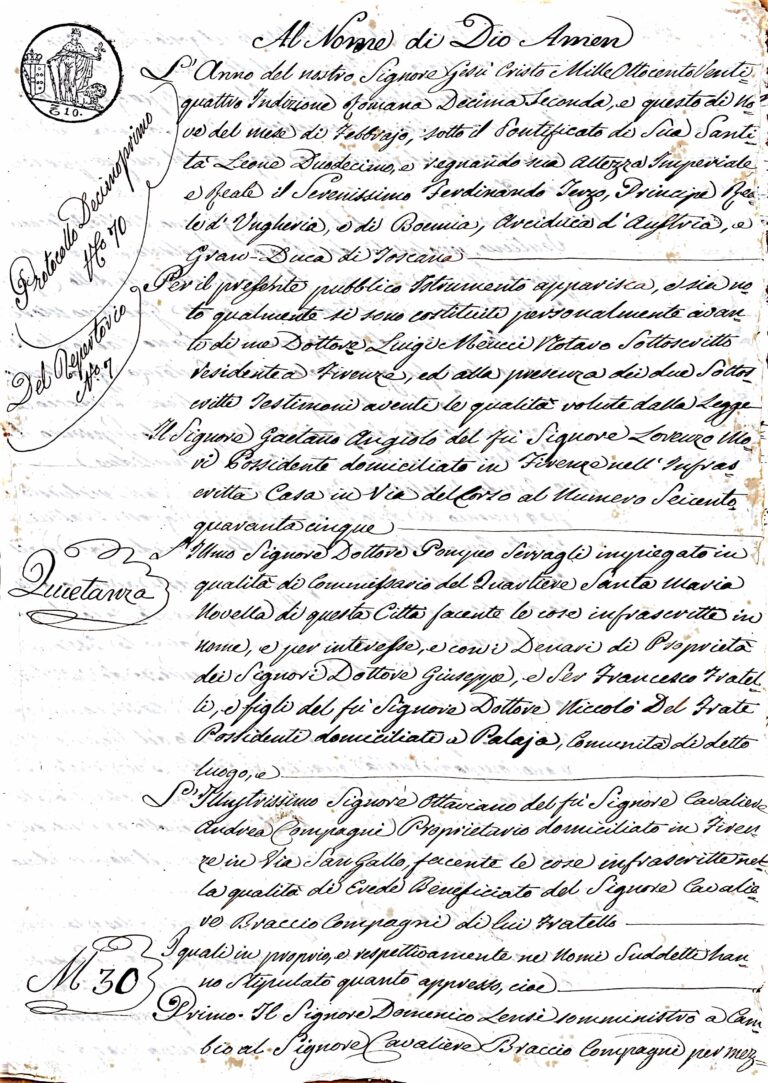 Al Nome di Dio Amen
L'Anno del nostro Signore Gesù Cristo MilleOttocentoVenti=
quattro Indizione Romana Decima Seconda, e questo dì No=
ve del mese di Febbrajo, sotto il Pontificato di Sua Santi=
tà Leone Duodecimo, e regnando sua Altezza Imperiale
e Reale il Serenissimo Ferdinando Terzo, Principe Rea=
le d'Ungheria, e di Boemia, Arciduca d'Austria, e
Gran-Duca di Toscana
Per il presente pubblico Istrumento apparisca, e sia no=
to qualmente si sono costituiti personalmente avan=
to di me Dottore Luigi Meucci Notaro Sottoscritto
residente a Firenze, ed alla presenza dei due Sottos=
critti Testimoni aventi le qualità volute dalla Legge
Il Signore Gaetano Angiolo del fù Signore Lorenzo Mo=
ri Possidente domiciliato in Firenze nell'Infras=
critta Casa in Via del Corso al Numero Seicento=
quaranta cinque
L'Illmo Signore Dottore Pompeo Serragli impiegato in
qualità di Commissario del Quartiere Santa Maria
Novella di questa Città facente le cose infrascritte in
nome, e per interesse, e con i Denari di Proprietà
dei Signori Dottore Giuseppe, e Ser Francesco Fratel=
li, e figli del fù Signore Dottore Niccolò Del Frate
Possidenti domiciliati a Palaja, Comunità di detto
luogo, e
L'Illustrissimo Signore Ottaviano del fù Signore Cavaliere
Andrea Compagni Proprietario domiciliato in Firen=
ze in Via San Gallo, facente le cose infrascritte nel=
la qualità di Erede Beneficiato del Signore Cavalie=
re Braccio Compagni di lui Fratello
I quali in proprio, e respettivamente ne Nomi Suddetti han=
no Stipulato quanto appresso, cioè
Primo. Il Signore Domenico Lensi somministrò a Cam=
bio al Signore Cavaliere Braccio Compagni per mez=
Protocollo Decimoprimo
No 70
Del Repertorio
No. 7
Quietanza
M 30
10.